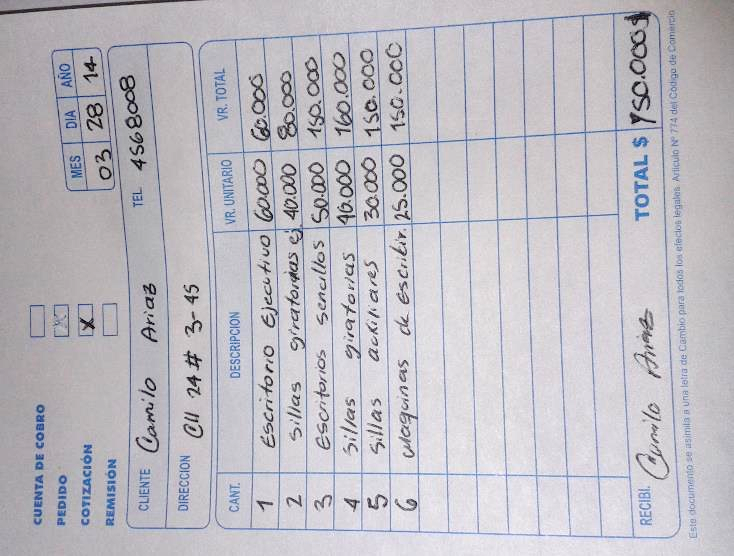 CUENTA DE COBRO
PEDIDO X
COTIZACIÓN X
REMISION
MES DIA AÑO
03 28 14
CLIENTE Camilo Ariaz TEL. 4568008
DIRECCION Cll 24 # 3-45
CANT. DESCRIPCION VR. UNITARIO VR. TOTAL
1 Escritorio Ejecutivo 60.000 60.000
2 sillas giratorias ej. 40.000 80.000
3 Escritorios sencillos 50.000 150.000
4 sillas giratorias 40.000 160.000
5 sillas auxiliares 30.000 150.000
6 Maquinas de escribir. 25.000 150.000
RECIBI. Camilo Ariaz TOTAL $ 750.000
Este documento se asimila a una letra de Cambio para todos los efectos legales. Artículo Nº 774 del Código de Comercio